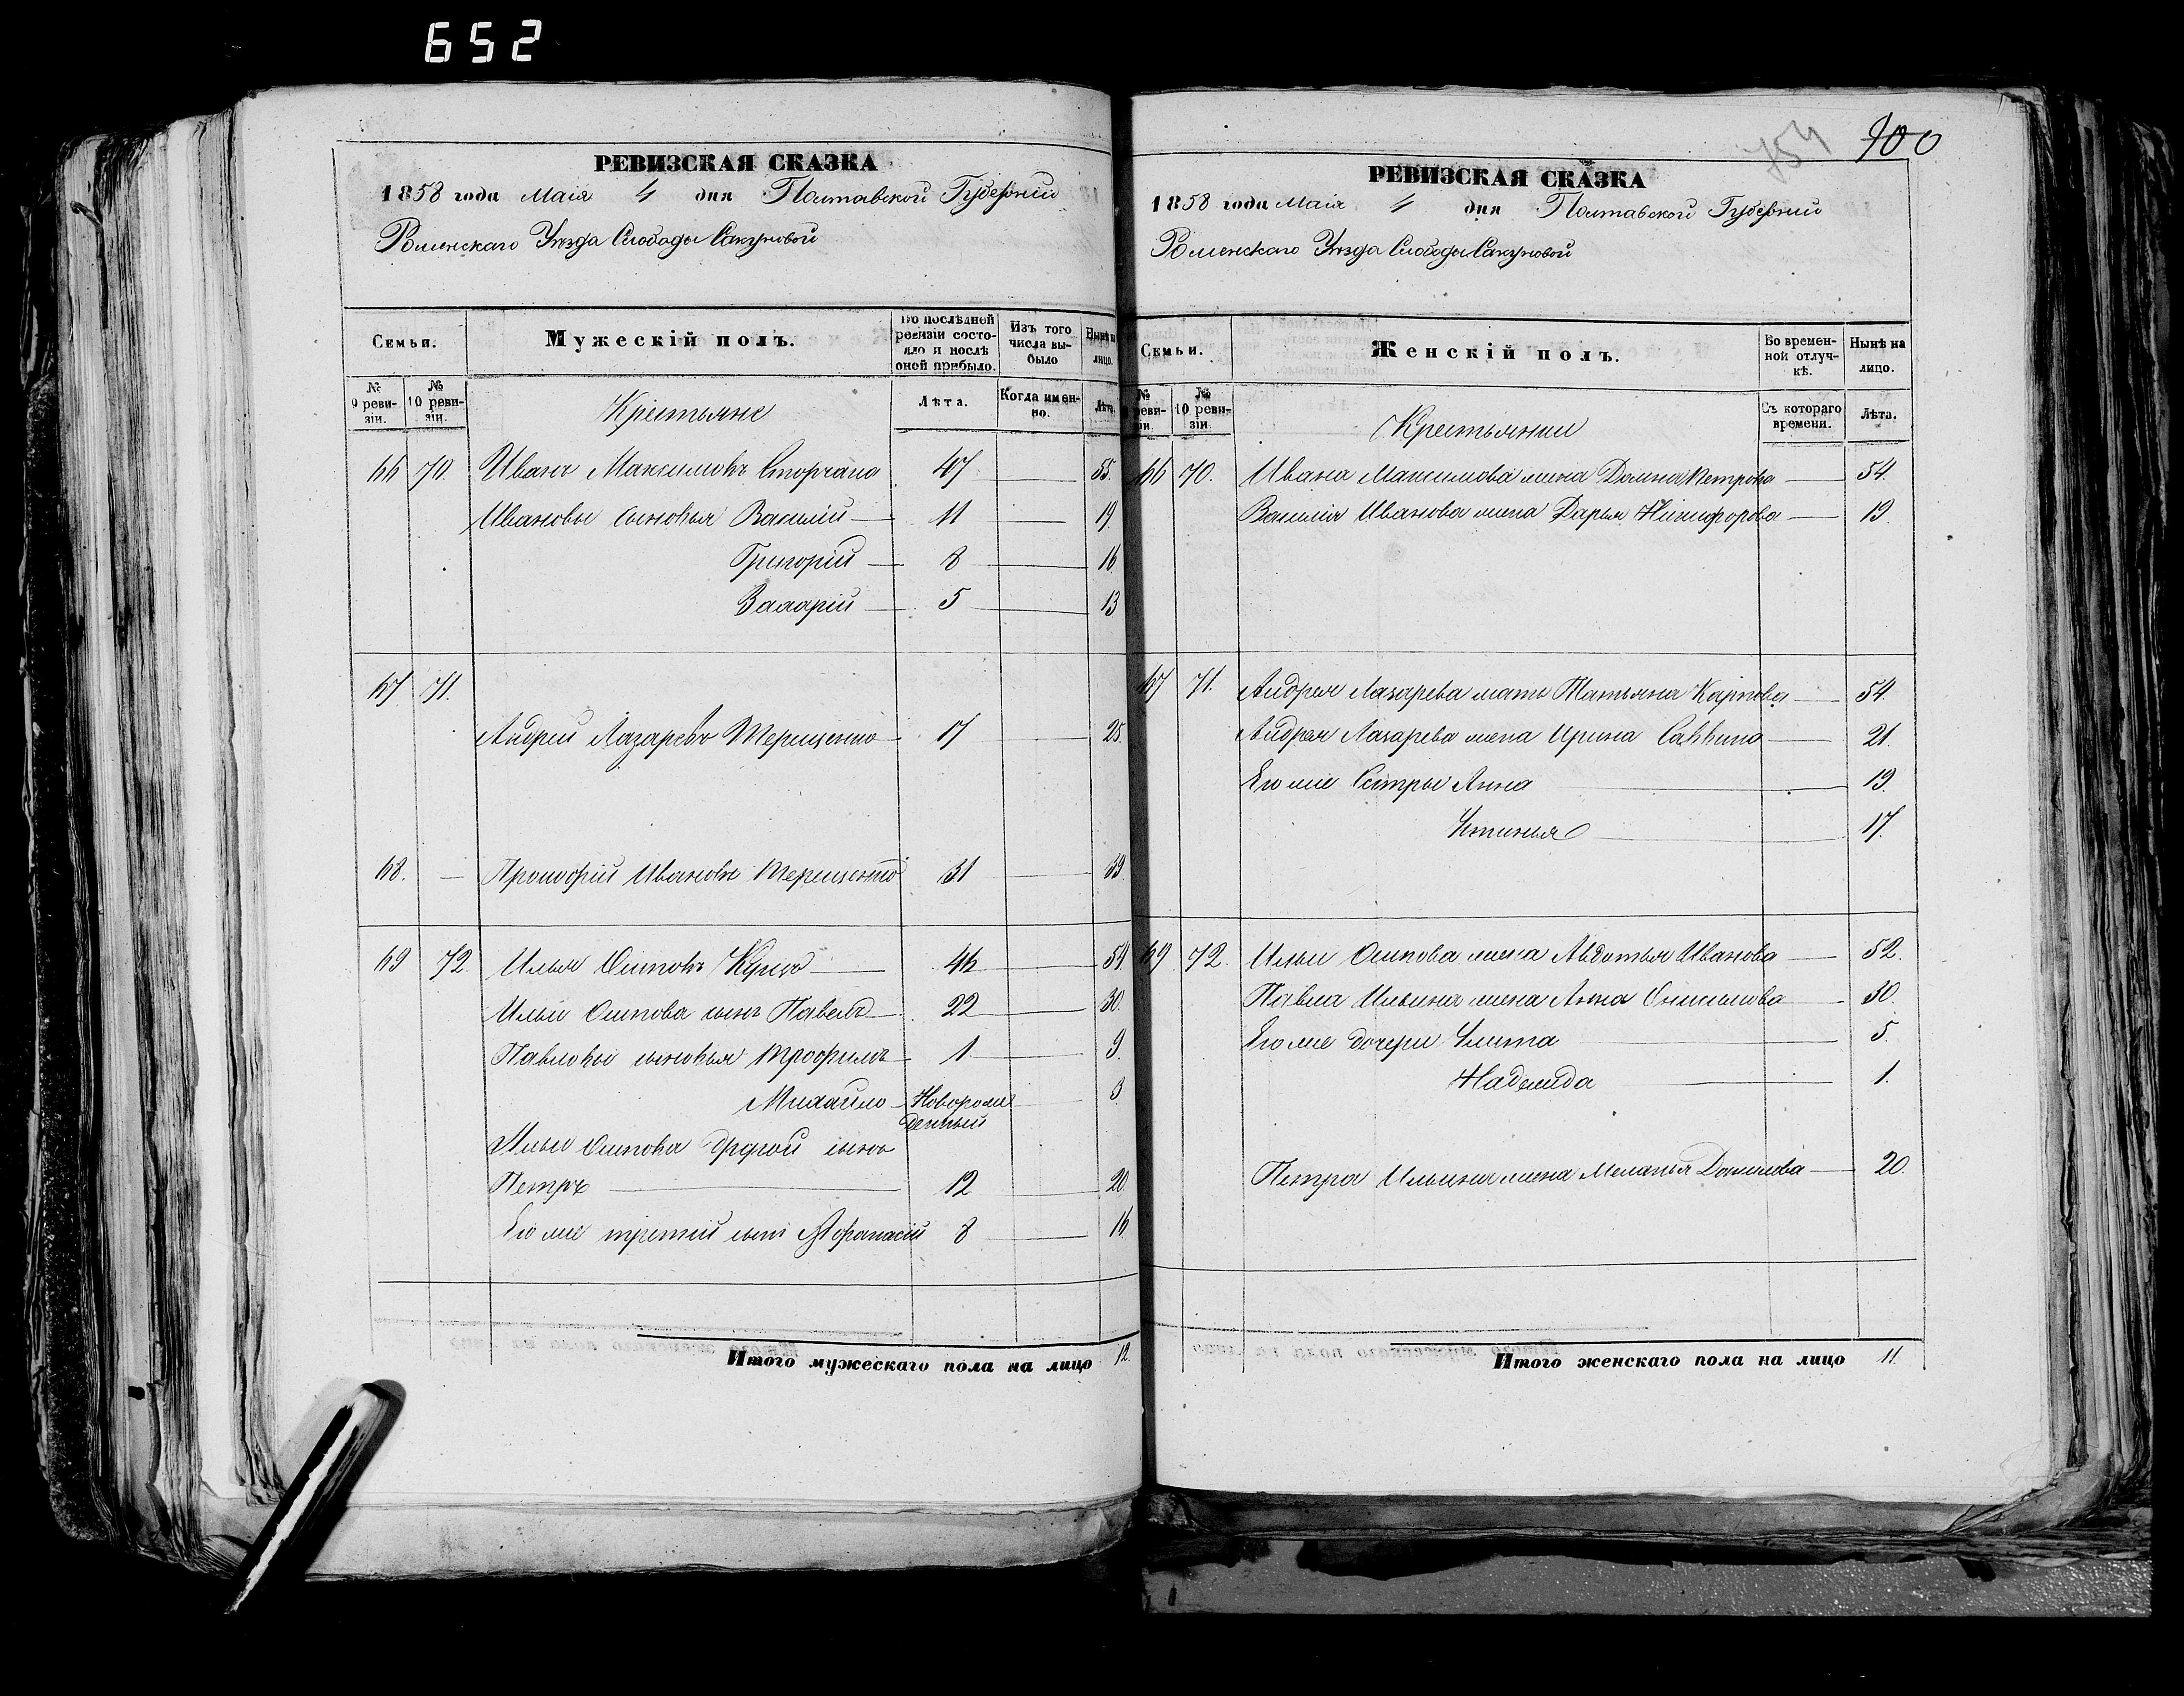 652
РЕВИЗСКАЯ СКАЗКА
1858 года Маія 4 дня Полтавской Губерніи
Роменскаго Уѣзда Слободы Сакуновой
Семьи.
Мужескій полъ.
По послѣдней ревизіи состояло и послѣ оной прибыло.
Изъ того числа выбыло
Нынѣ на лицо.
№ 9 ревизіи.
№ 10 ревизіи.
Крестьяне
Лѣта.
Когда именно.
Лѣта.
66 70. Иванъ Максимовъ 47 55.
Ивановы сыновья Василій 11 19
Григорій 8 16
Захарій 5 13
67 71.
Андрей Лазаревъ Терещенко 17 25.
68. — Прокофій Ивановъ Терещенко 31 39.
69 72. Илья Осиповъ Куцъ 46 54
Ильи Осипова сынъ Павелъ 22 30.
Павловы сыновья Трофимъ 1 9.
Михайло Новорожденный 3
Ильи Осипова другой сынъ
Петръ 12 20.
Его же третій сынъ Афанасій 8 16
Итого мужескаго пола на лицо 12.
754 900
РЕВИЗСКАЯ СКАЗКА
1858 года Маія 4 дня Полтавской Губерніи
Роменскаго Уѣзда Слободы Сакуновой
Семьи.
Женскій полъ.
Во временной отлучкѣ.
Нынѣ на лицо.
№ 9 ревизіи.
№ 10 ревизіи.
Крестьянки
Съ котораго времени.
Лѣта.
66 70. Ивана Максимова жена Домна Петрова 54.
Василія Иванова жена Дарья Никифорова 19.
67 71. Андрея Лазарева мать Татьяна Карпова 54.
Андрея Лазарева жена Ирина Саввина 21.
Его же Сестры Анна 19.
Устинья 17.
69 72. Ильи Осипова жена Авдотья Иванова 52.
Павла Ильина жена Анна Онисимова 30.
Его же дочери Улита 5.
Надежда 1.
Петра Ильина жена Меланья Данилова 20.
Итого женскаго пола на лицо 11.